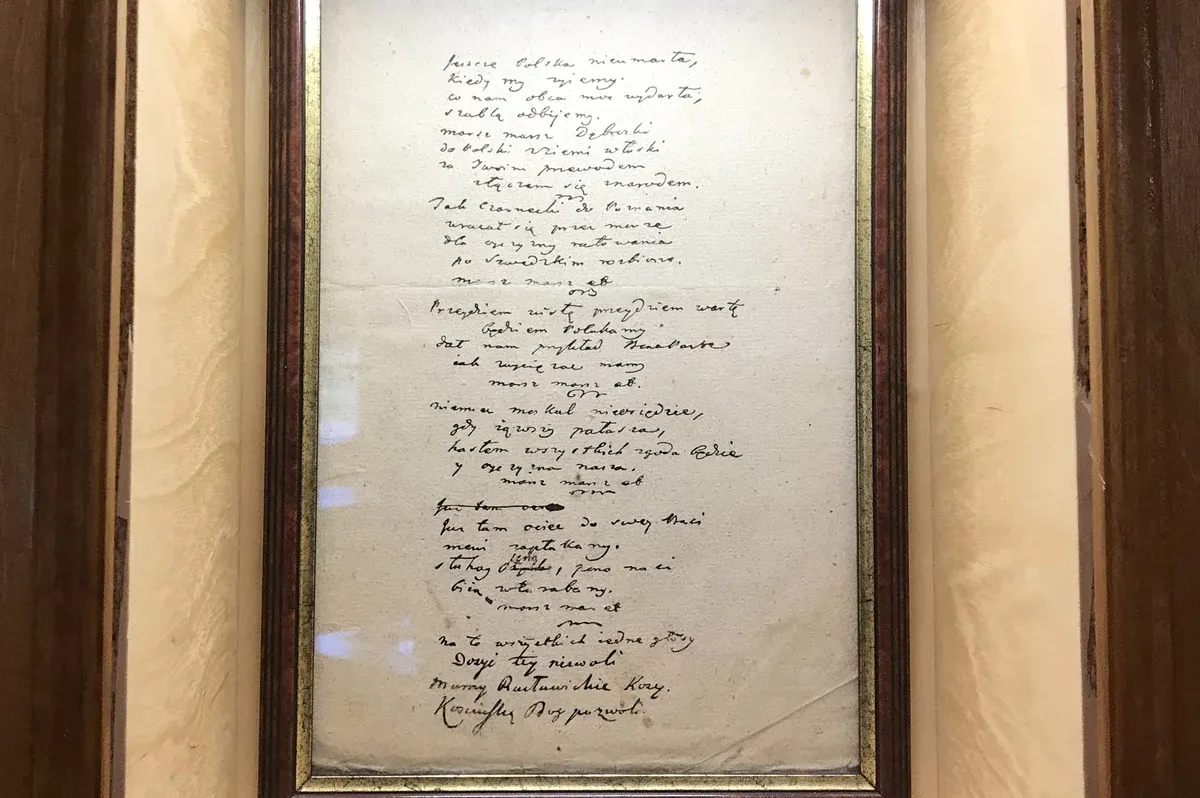 Jeszcze Polska nieumarła,
kiedy my zyiemy.
co nam obca moc wydarła,
szablą odbijemy.
marsz marsz Dąbroski
do Polski zziemi włoski
za Twoim przewodem
złączem się znarodem.
Jak Czarnecki do Poznania
wracał się przez morze
dla oyczyzny ratowania
po Szwedzkim rozbiorze.
marsz marsz et
Przeydziem wisłę przeydziem wartę
będziem Polakamy
dał nam przykład Bonaparte
iak zwyciężać mamy
marsz marsz et.
niemiec moskal nieosiędzie,
gdy iąwszy pałasza,
hasłem wszystkich zgoda będzie
y oyczyzna nasza.
marsz marsz et
Juz tam
Juz tam ociec do swey Basi
mowi zapłakany.
słuchay ieno, pono nasi
biią wtarabany.
marsz mar et
na to wszystkich iedne głosy
Dosyć tey niewoli
Mamy Racławickie Kosy.
Kosciuszkę Bog pozwoli.